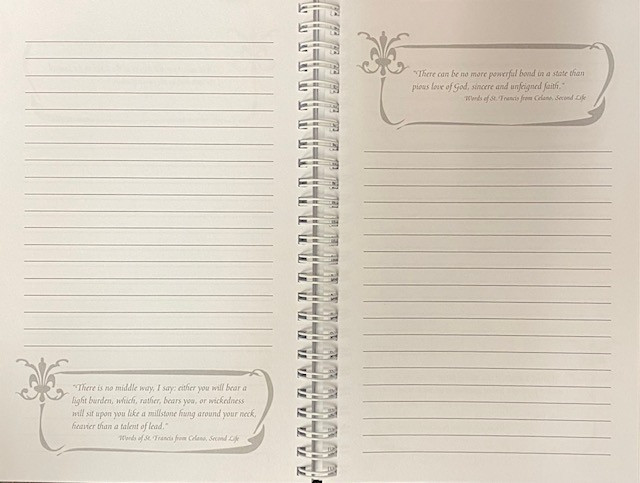 "There is no middle way, I say: either you will bear a
light burden, which, rather, bears you, or wickedness
will sit upon you like a millstone hung around your neck,
heavier than a talent of lead."
Words of St. Francis from Celano, Second Life
"There can be no more powerful bond in a state than
pious love of God, sincere and unfeigned faith."
Words of St. Francis from Celano, Second Life